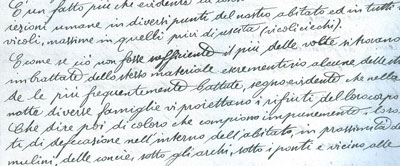 C'è un fatto più che evidente
iezioni umane in diversi punti del nostro abitato ed in tutti
vicoli, massime in quelli privi di uscita (vicoli ciechi).
E come se ciò non fosse sufficiente il più delle volte si trovano
imbrattate dello stesso materiale escrementizio alcune delle st
de le più frequentemente battute, segno evidente che nella
notte diverse famiglie vi proiettano i rifiuti del loro corpo
Che dire poi di coloro che compiono impunemente i loro
ti di defecazione nell'interno dell'abitato, in prossimità de
mulini, delle concie, sotto gli archi, sotto i ponti e vicino alle